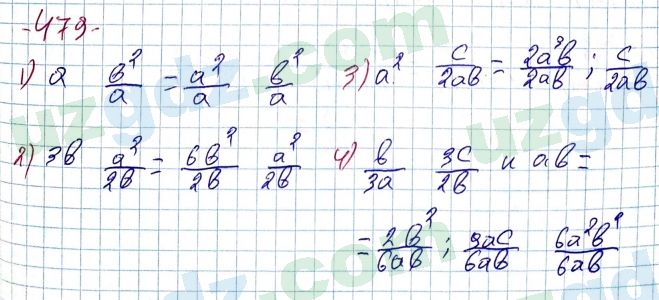 -479-
1) a b²/a = a²/a b²/a 3) a² c/2ab = 2a³b/2ab ; c/2ab
2) 3b a²/2b = 6b²/2b a²/2b 4) b/3a 3c/2b и ab =
= 2b²/6ab ; 9ac/6ab 6a²b²/6ab
uzgdz.com
uzgdz.com